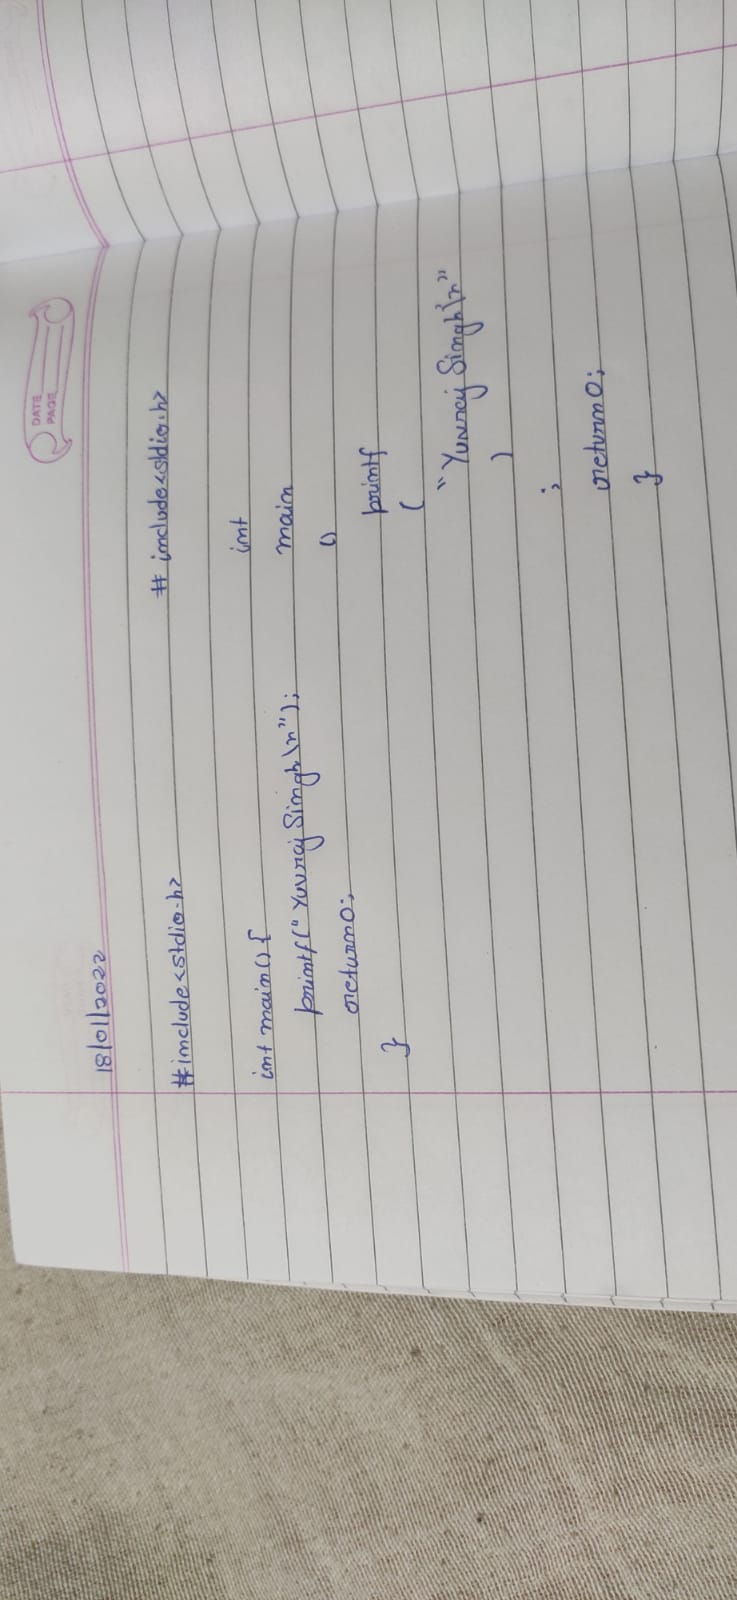 DATE
PAGE
18/01/2022
#include<stdio.h>
int main(){
printf("Yuvraj Singh\n");
return0;
}
#include<stdio.h>
int
main
()
printf
(
"Yuvraj Singh\n"
)
;
return0;
}